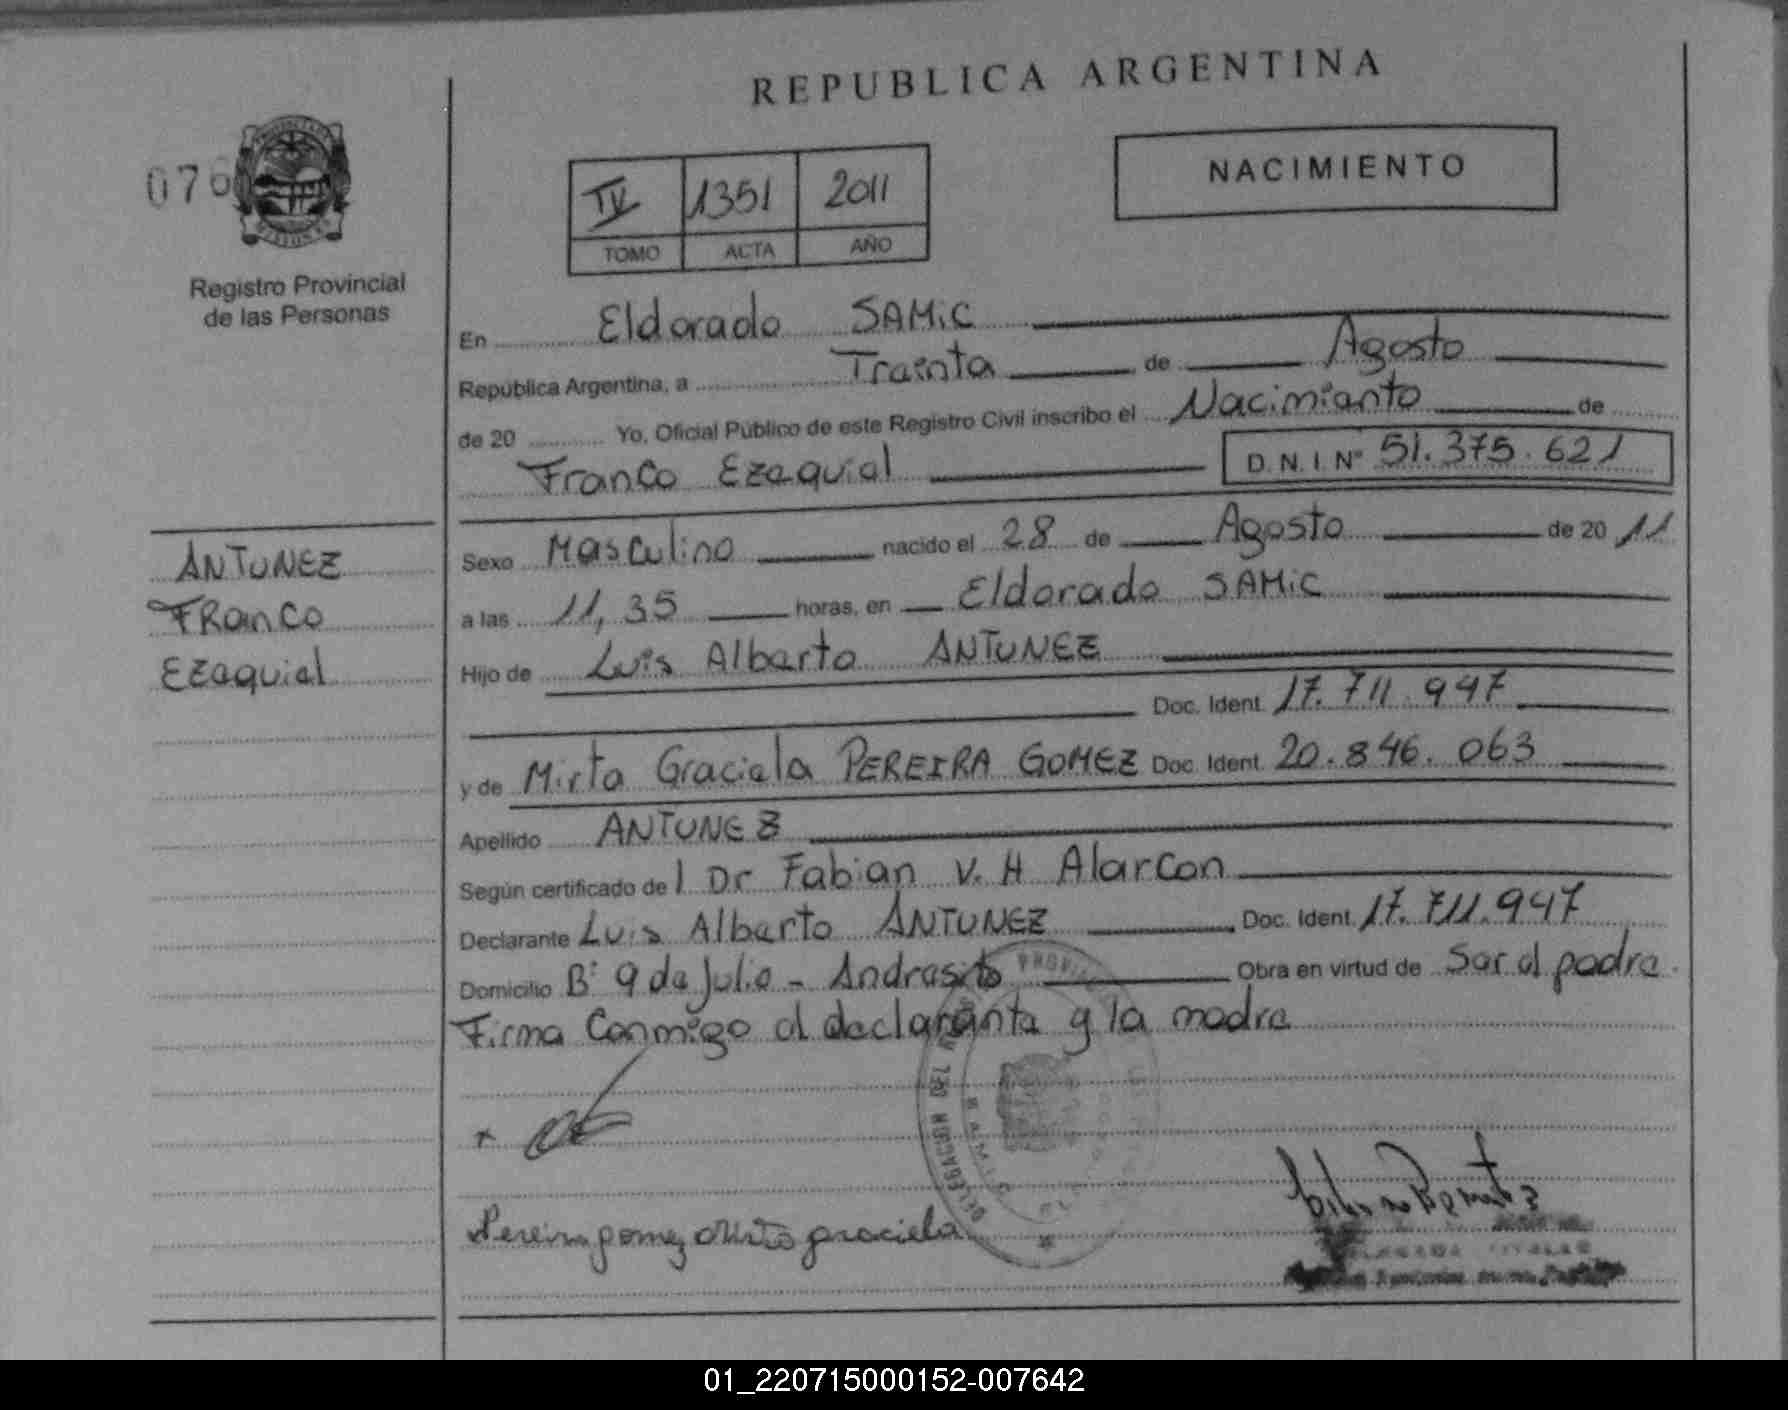 REPUBLICA ARGENTINA
076
NACIMIENTO
IV 1351 2011
TOMO ACTA AÑO
Registro Provincial
de las Personas
En Eldorado SAMiC
República Argentina, a Treinta de Agosto
de 20 Yo, Oficial Público de este Registro Civil inscribo el Nacimiento de
Franco Ezequiel D. N. I. Nº 51.375.621
ANTUNEZ
FRanco
Ezequiel
Sexo Masculino nacido el 28 de Agosto de 20 11
a las 11,35 horas, en Eldorado SAMiC
Hijo de Luis Alberto ANTUNEZ
Doc. Ident. 17.711.947
y de Mirta Graciela PEREIRA GOMEZ Doc. Ident. 20.846.063
Apellido ANTUNEZ
Según certificado de l Dr Fabian V. H Alarcon
Declarante Luis Alberto ANTUNEZ Doc. Ident. 17.711.947
Domicilio Bº 9 de Julio - Andresito Obra en virtud de Ser el padre.
Firma Conmigo el declarante y la madre
Pereira gomez Mirta graciela
01_220715000152-007642